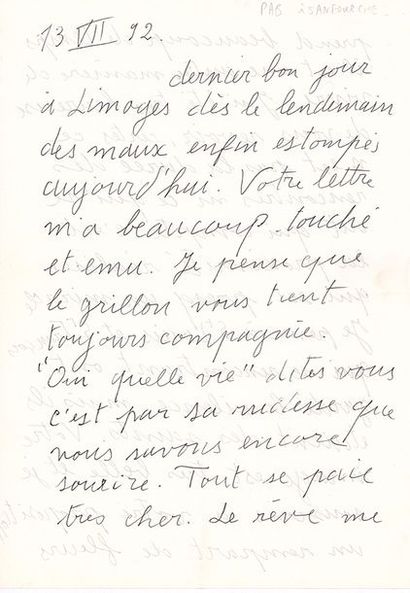 13 VII 92
dernier bon jour
à Limoges dès le lendemain
des maux enfin estompés
aujourd'hui. Votre lettre
m'a beaucoup touché
et emu. Je pense que
le grillon vous tient
toujours compagnie.
"Oui quelle vie" dites vous
c'est par sa rudesse que
nous savons encore
sourire. Tout se paie
très cher. Le rêve me